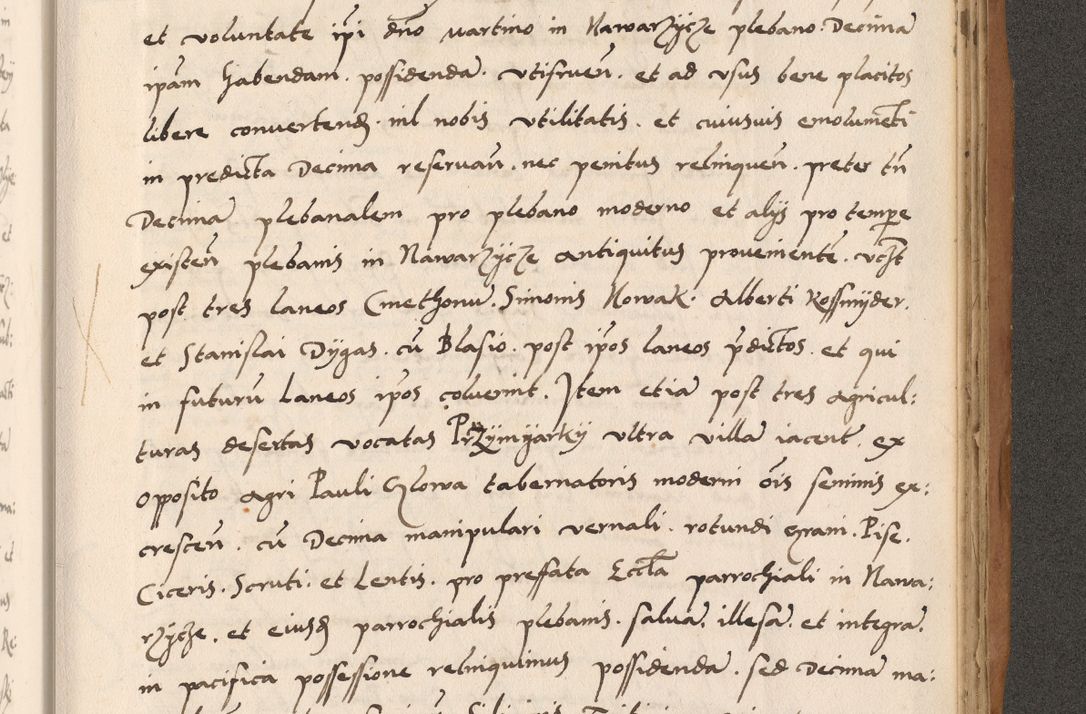 et voluntate ip̄i dn̄o Martino in Nawarzycze plebano. Decima
ip̄am habendam. possidenda. vtifruen̄. et ad vsus bene placitos
libere convertend. nil nobis vtilitatis. et cuiusuis emolumēti
in predicta Decima reseruan̄. nec penitus relinquen̄. preter tn̄
Decima plebanalem pro plebano moderno et alijs pro tempe
existen̄ plebanis in Nawarzycze antiquitus proueniente. vcht
post tres laneos Cmethonu. Simonis Nowak. Alberti Kossmyder.
et Stanislai Dygas. cū Blasio. post ip̄os laneos p̄dictos. et qui
in futurū Laneos ip̄os coluerint. Item etiā post tres agricul:
turas desertas vocatas Przymyarky vltra villa iacent. ex
opposito agri Pauli Glowa tabernatoris moderni ōis seminis ex:
crescen̄. cū Decima manipulari vernali. rotundi grani. Pise.
Ciceris. Scruti. et Lentis. pro preffata Eccl̄a parrochiali in Nawa:
rzycze. et eiusq parrochialis plebanis. salua. illesa. et integra.
in pacifica possessione relinquimus possidenda. sed Decima ma: